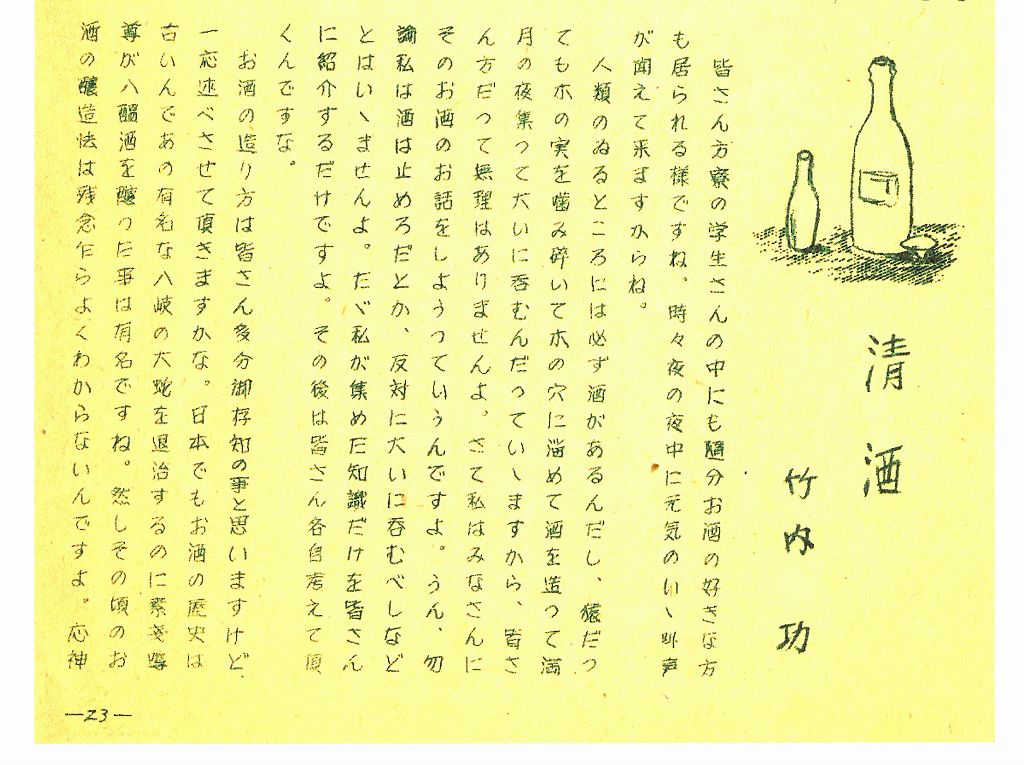 清酒
竹内 功
皆さん方寮の学生さんの中にも随分お酒の好きな方
も居られる様ですね。時々夜の夜中に元気のいゝ叫声
が聞えて来ますからね。
人類のゐるところには必ず酒があるんだし、猿だつ
ても木の実を噛み碎いて木の穴に溜めて酒を造つて満
月の夜集つて大いに呑むんだつていゝますから、皆さ
ん方だつて無理はありませんよ。さて私はみなさんに
そのお酒のお話をしようつていうんですよ。うん、勿
論私は酒は止めろだとか、反対に大いに呑むべしなど
とはいゝませんよ。だゞ私が集めた知識だけを皆さん
に紹介するだけですよ。その後は皆さん各自考えて頂
くんですな。
お酒の造り方は皆さん多分御存知の事と思いますけど
一応述べさせて頂きますかな。日本でもお酒の歴史は
古いんであの有名な八岐の大蛇を退治するのに素戔嗚
尊が八醞酒を醸つた事は有名ですね。然しその頃のお
酒の醸造法は残念乍らよくわからないんですよ。応神
—23—